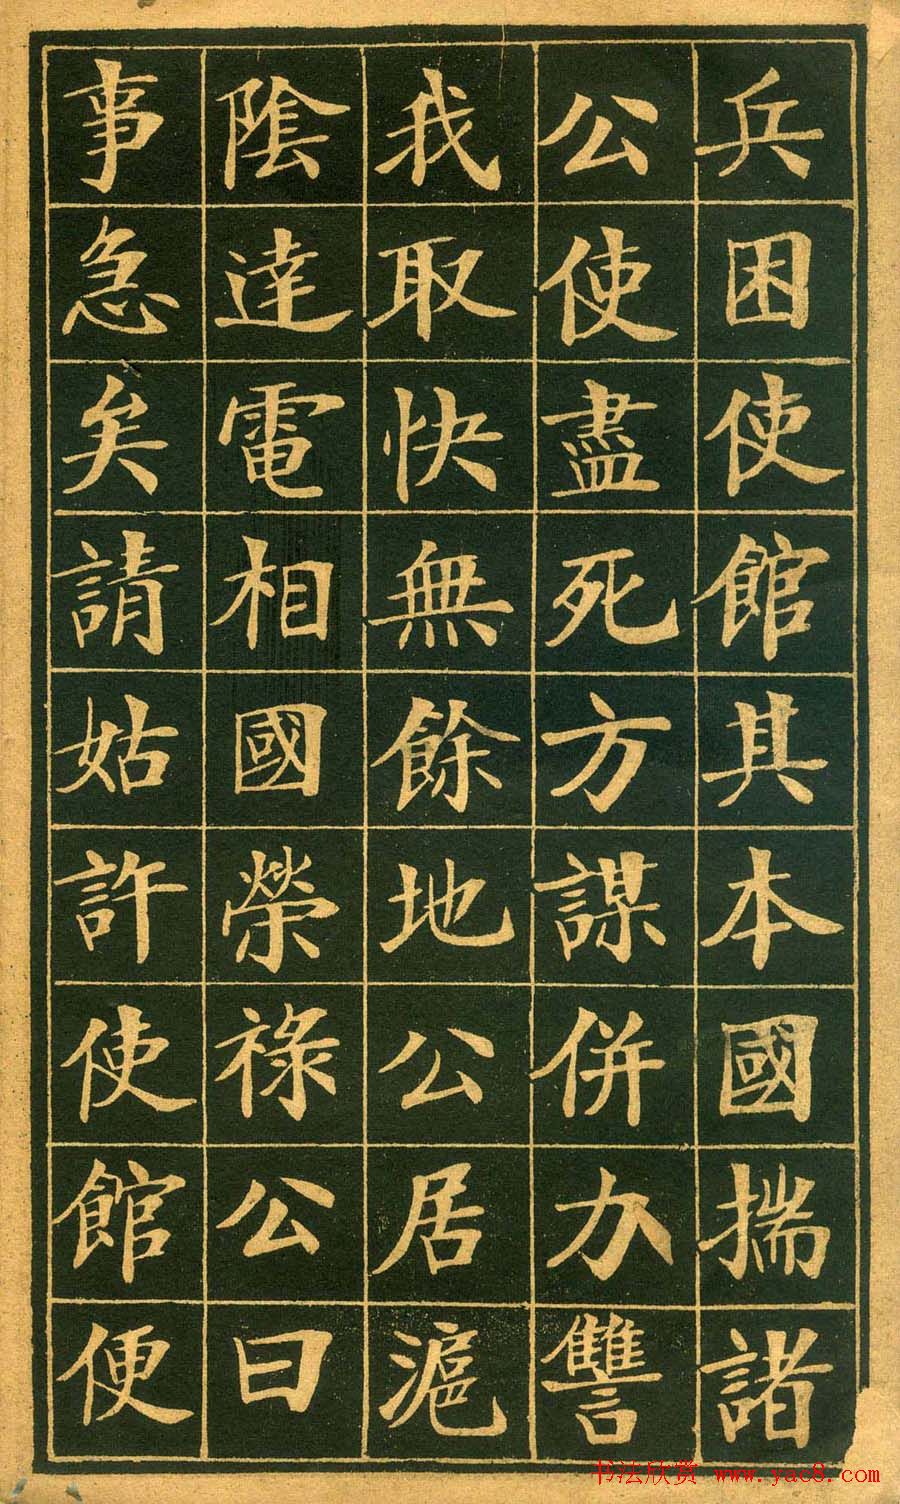 兵困使館其本國揣諸
公使盡死方謀併力讐
我取快無餘地公居滬
陰達電相國榮祿公曰
事急矣請姑許使館便
书法欣赏 www.yac8.com